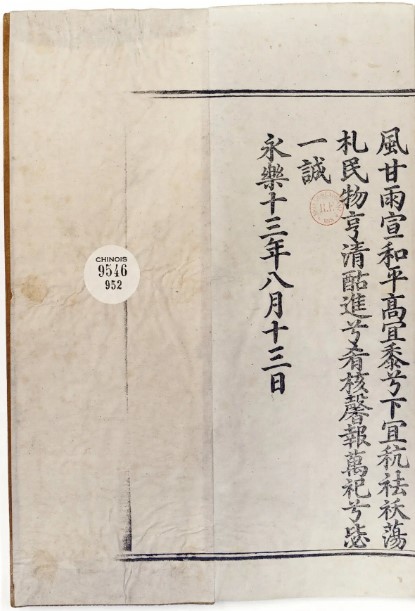 風甘雨宣和平高宜黍兮下宜秔祛祅蕩
札民物亨清酤進兮肴核馨報萬祀兮毖
一誠
永樂十三年八月十三日
CHINOIS
9546
952